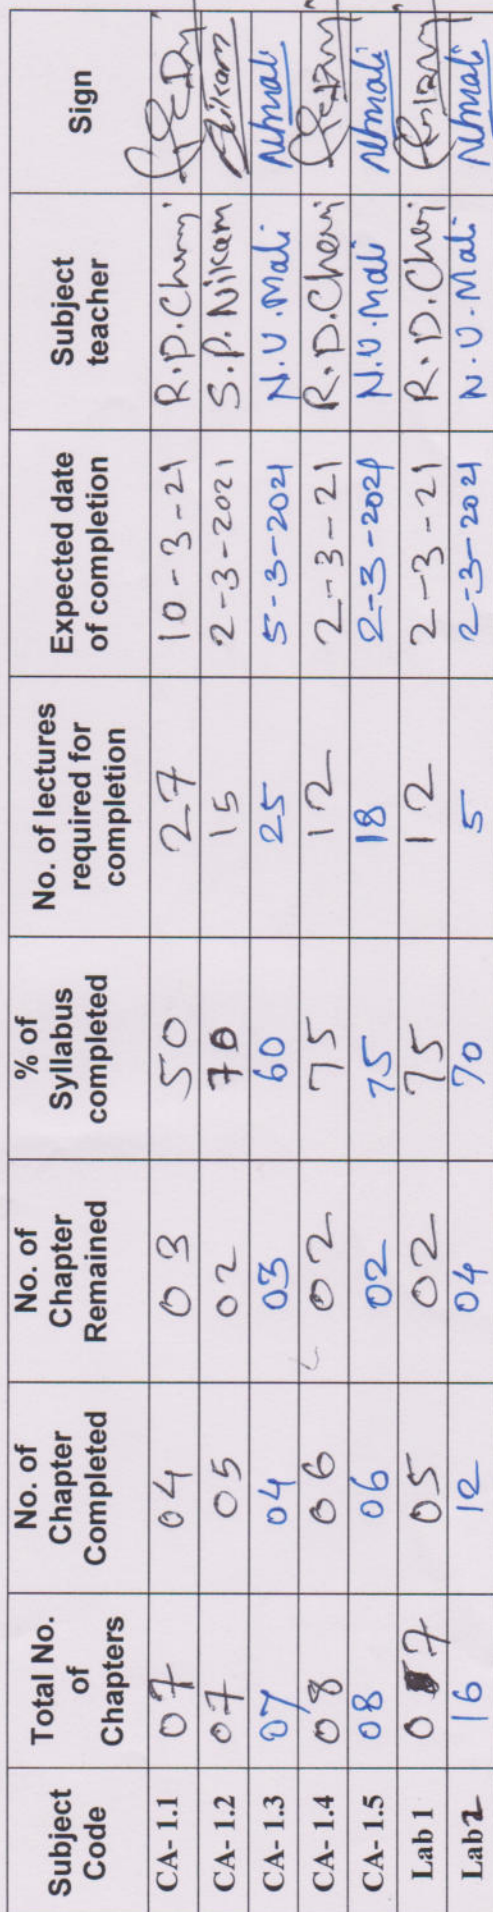 Subject Code | Total No. of Chapters | No. of Chapter Completed | No. of Chapter Remained | % of Syllabus completed | No. of lectures required for completion | Expected date of completion | Subject teacher | Sign
CA- 1.1 | 07 | 04 | 03 | 50 | 27 | 10-3-21 | R.D. |
CA- 1.2 | 07 | 05 | 02 | 70 | 15 | 2-3-2021 | S.P. Nikam | Nikam
CA- 1.3 | 07 | 04 | 03 | 60 | 25 | 5-3-2021 | N.U. Mali | NUmali
CA- 1.4 | 08 | 06 | 02 | 75 | 12 | 2-3-21 | R.D. |
CA- 1.5 | 08 | 06 | 02 | 75 | 18 | 2-3-2021 | N.U. Mali | NUmali
Lab 1 | 07 | 05 | 02 | 75 | 12 | 2-3-21 | R.D. |
Lab 2 | 16 | 12 | 04 | 70 | 5 | 2-3-2021 | N.U. Mali | NUmali